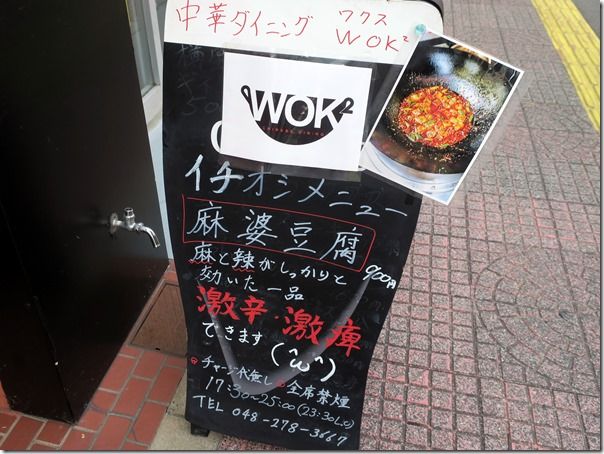 中華ダイニング ワクス
WOK²
WOK2
CHINESE DINING
イチオシメニュー
麻婆豆腐
900円
麻と辣がしっかりと
効いた一品
激辛・激痺
できます (^ω^)
チャージ代無し 全席禁煙
17:30〜25:00(23:30L.O)
TEL 048-278-3667